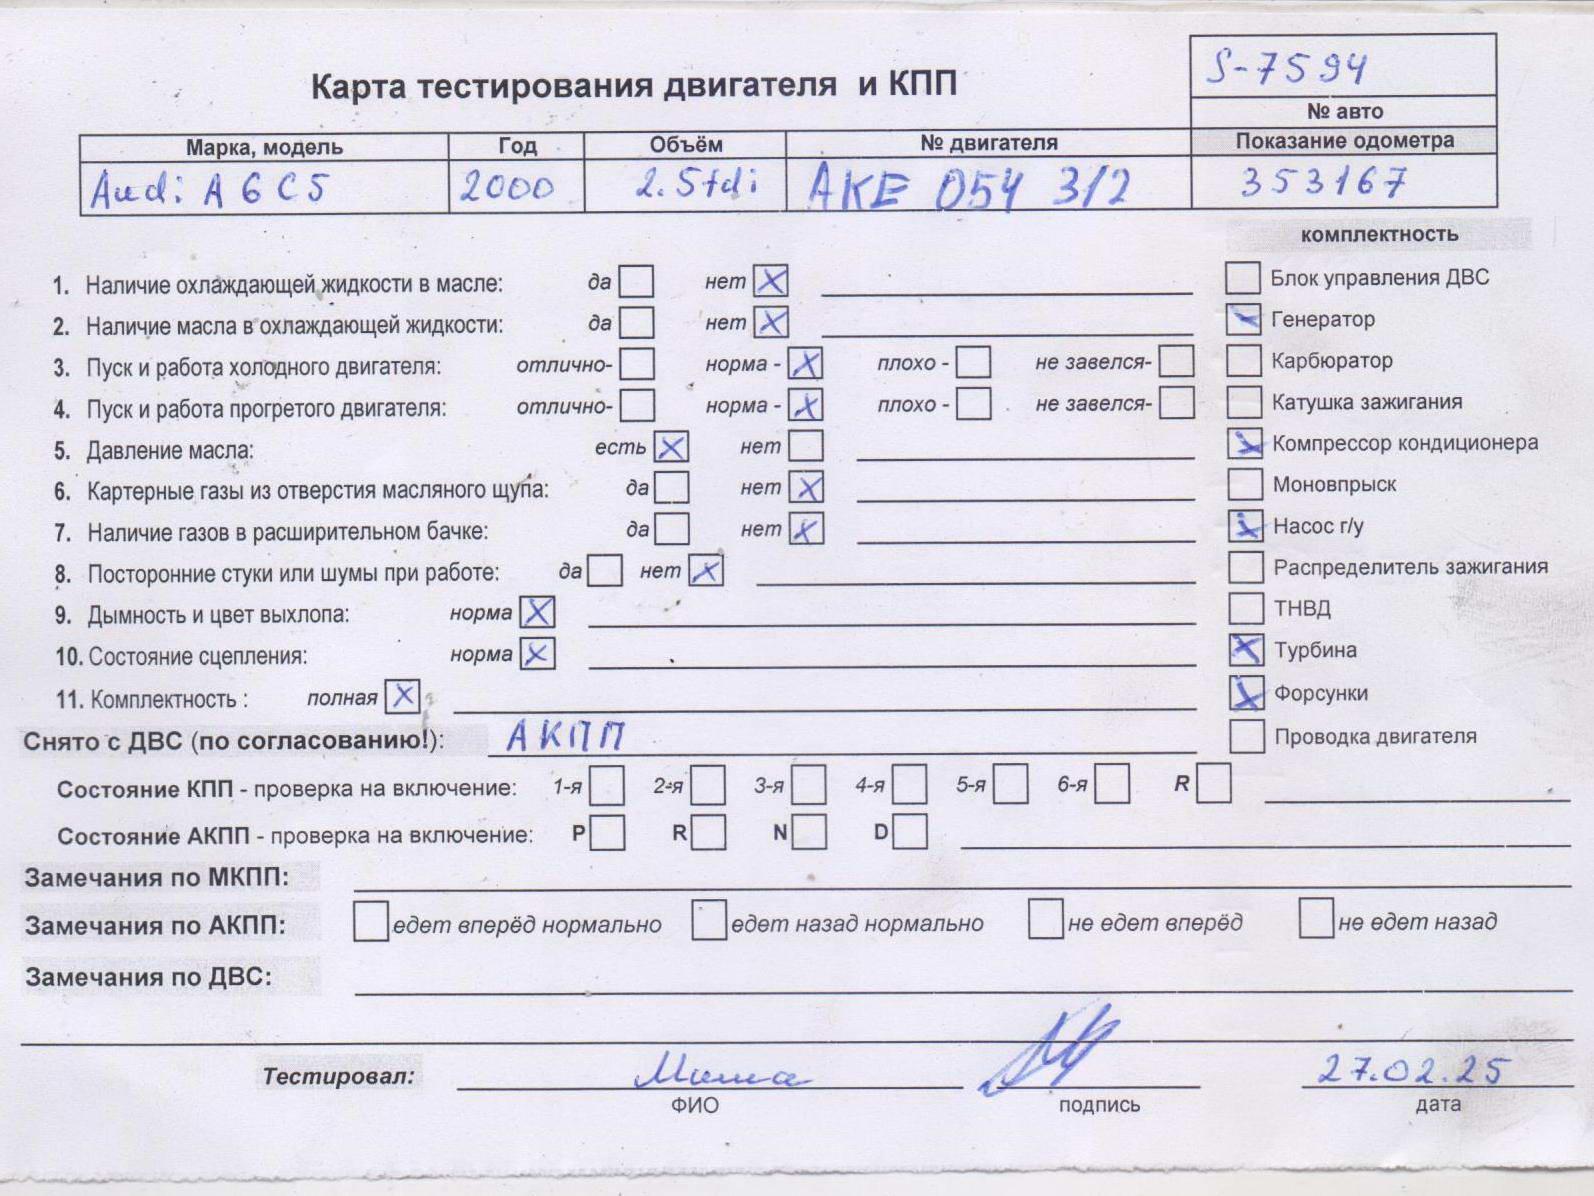 S-7594
Карта тестирования двигателя и КПП
№ авто
Марка, модель Год Объём № двигателя Показание одометра
Audi A6C5 2000 2.5tdi AKE 054 312 353167
комплектность
1. Наличие охлаждающей жидкости в масле: да нет Блок управления ДВС
2. Наличие масла в охлаждающей жидкости: да нет Генератор
3. Пуск и работа холодного двигателя: отлично- норма - плохо - не завелся- Карбюратор
4. Пуск и работа прогретого двигателя: отлично- норма - плохо - не завелся- Катушка зажигания
5. Давление масла: есть нет Компрессор кондиционера
6. Картерные газы из отверстия масляного щупа: да нет Моновпрыск
7. Наличие газов в расширительном бачке: да нет Насос г/у
8. Посторонние стуки или шумы при работе: да нет Распределитель зажигания
9. Дымность и цвет выхлопа: норма ТНВД
10. Состояние сцепления: норма Турбина
11. Комплектность : полная Форсунки
Снято с ДВС (по согласованию!): АКПП Проводка двигателя
Состояние КПП - проверка на включение: 1-я 2-я 3-я 4-я 5-я 6-я R
Состояние АКПП - проверка на включение: P R N D
Замечания по МКПП:
Замечания по АКПП: едет вперёд нормально едет назад нормально не едет вперёд не едет назад
Замечания по ДВС:
Тестировал: Миша 27.02.25
ФИО подпись дата